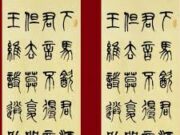 下馬飲君酒
君言不得
但去莫復
王維詩
下馬飲君酒
君言不得
但去莫復
王維詩